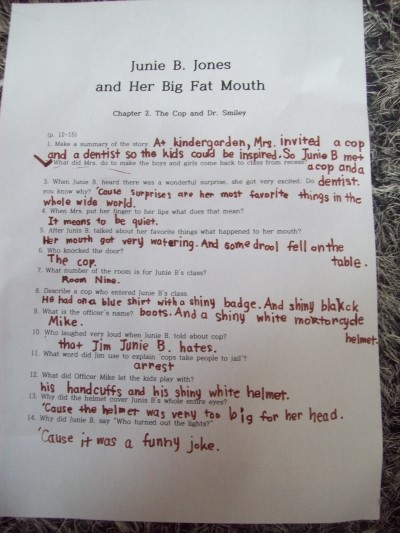 Junie B. Jones
and Her Big Fat Mouth
Chapter 2. The Cop and Dr. Smiley
(p. 12-15)
1. Make a summary of the story. At kindergarden, Mrs. invited a cop
and a dentist so the kids could be inspired. So Junie B met
2. What did Mrs. do to make the boys and girls come back to class from recess? a cop and a
3. When Junie B. heard there was a wonderful surprise, she got very excited. Do dentist.
you know why? 'Cause surprises are her most favorite things in the
whole wide world.
4. When Mrs. put her finger to her lips what does that mean?
It means to be quiet.
5. After Junie B. talked about her favorite things what happened to her mouth?
Her mouth got very watering. And some drool fell on the
6. Who knocked the door? table.
The cop.
7. What number of the room is for Junie B's class?
Room Nine.
8. Describe a cop who entered Junie B's class.
He had on a blue shirt with a shiny badge. And shiny black
9. What is the officer's name? boots. And a shiny white motorcycle
Mike. helmet.
10. Who laughed very loud when Junie B. told about cop?
that Jim Junie B. hates.
11. What word did Jim use to explain 'cops take people to jail'?
arrest
12. What did Officer Mike let the kids play with?
his handcuffs and his shiny white helmet.
13. Why did the helmet cover Junie B's whole entire eyes?
'Cause the helmet was very too big for her head.
14. Why did Junie B. say "Who turned out the lights?"
'Cause it was a funny joke.